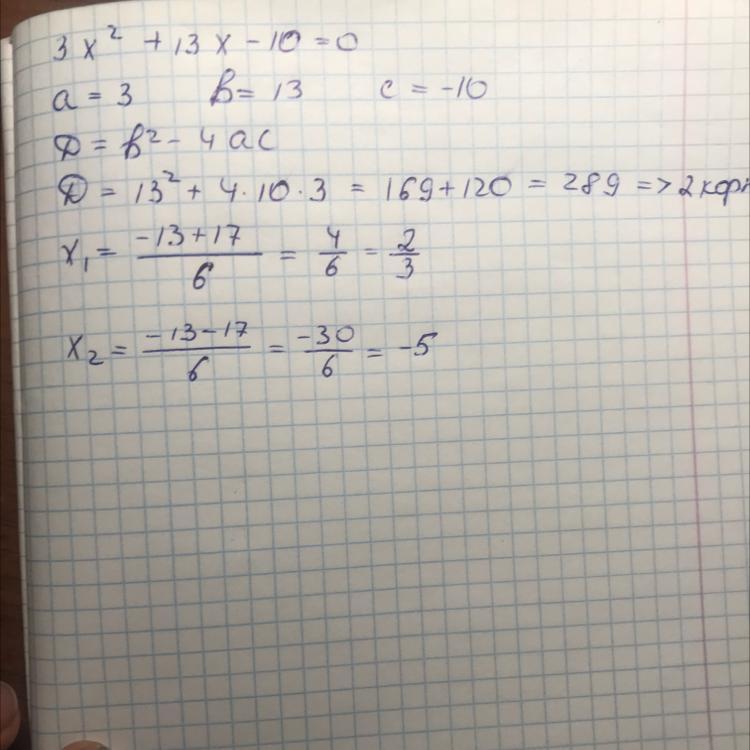 3x² + 13x - 10 = 0
a = 3 b = 13 c = -10
D = b² - 4ac
D = 13² + 4·10·3 = 169 + 120 = 289 => 2
x₁ = (-13+17)/6 = 4/6 = 2/3
x₂ = (-13-17)/6 = -30/6 = -5